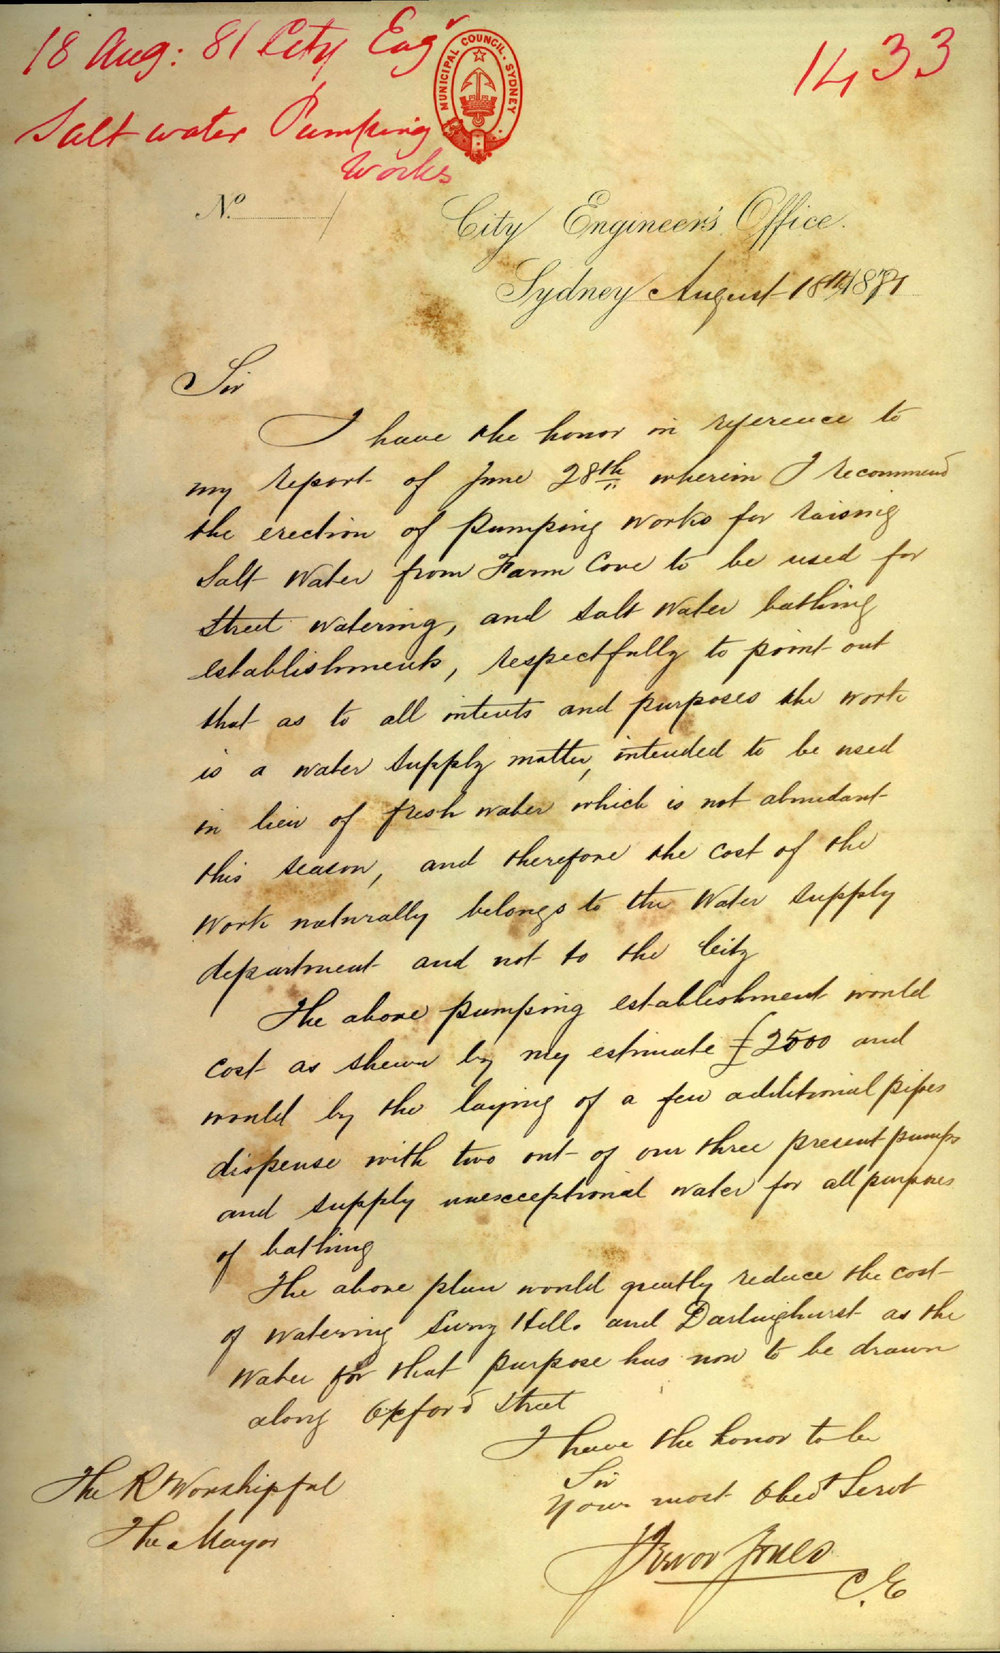 18 Aug: 81 City Engr
1433
Salt water Pumping
Works
MUNICIPAL COUNCIL. SYDNEY
No.
City Engineer's Office.
Sydney August 18th 1881
Sir
I have the honor in reference to
my report of June 28th wherein I recommend
the erection of Pumping Works for raising
Salt Water from Farm Cove to be used for
street watering, and salt water bathing
establishments, respectfully to point out
that as to all intents and purposes the work
is a water supply matter, intended to be used
in lieu of fresh water which is not abundant
this season, and therefore the cost of the
work naturally belongs to the Water Supply
department and not to the City
The above pumping establishment would
cost as shewn by my estimate £2500 and
would by the laying of a few additional pipes
dispense with two out of our three present pumps
and supply unexceptional water for all purposes
of bathing
The above plan would greatly reduce the cost
of watering Surry Hills and Darlinghurst as the
Water for that purpose has now to be drawn
along Oxford Street
I have the honor to be
Sir
Your most Obedt Servt
Trevor Jones
C.E
The R Worshipful
The Mayor